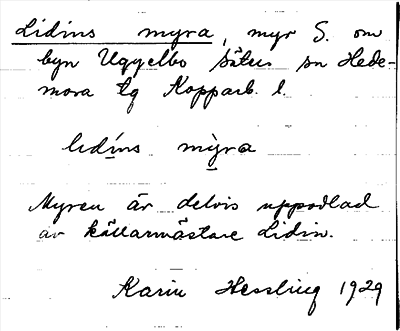 Lidins myra, myr S. om
byn Uggelbo Säters sn Hede-
mora tg Kopparb. l.
lidíns mỳra
Myren är delvis uppodlad
av källarmästare Lidin.
Karin Hessling 1929